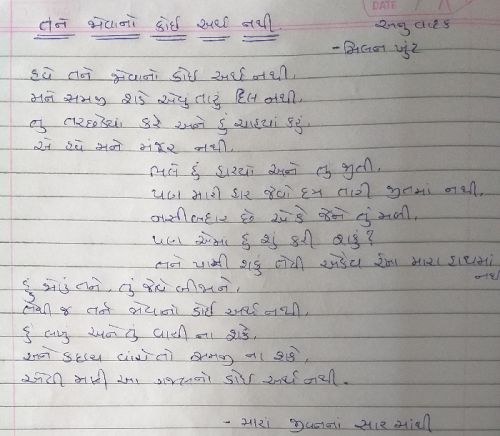 તને જોવાનો કોઈ અર્થ નથી.
DATE
અનુવાદક
- મિલન ખુંટ
હવે તને જોવાનો કોઈ અર્થ નથી,
મને સમજી શકે એવું તારું દિલ નથી.
તુ તરછોડ્યા કરે અને હું ચાહ્યાં કરું,
એ હવે મને મંજૂર નથી.
ભલે હું હારયો અને તુ જીતી,
પણ મારી હાર જેવો દમ તારી જીતમાં નથી.
નસીબદાર હશે એ કે જેને તું મળી,
પણ એમાં હું શું કરી શકું?
તને પામી શકું તેવી એકેય રેખા મારા હાથમાં નથી
હું જોઉં તને, તું જોવે બીજાને,
તેથી જ તને જોવાનો કોઈ અર્થ નથી.
હું લખુ અને તું વાચી ના શકે,
અને કદાચ વાંચે તો સમજી ના શકે,
એટલે મારી આ ગઝલનો કોઈ અર્થ નથી.
- મારાં જીવનનાં સાર માંથી